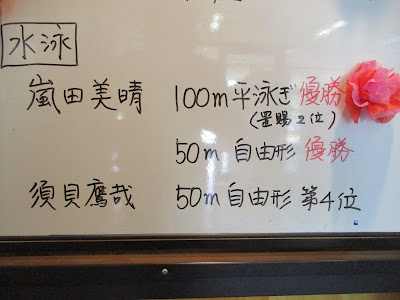 水泳
嵐田美晴 100m平泳ぎ優勝
(置賜2位)
50m 自由形 優勝
須貝鷹哉 50m自由形 第4位